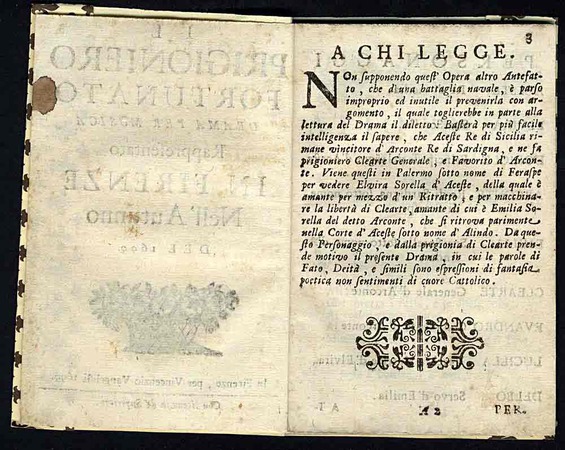 3
A CHI LEGGE.
NOn supponendo quest' Opera altro Antefat-
to, che d'una battaglia navale, è parso
improprio ed inutile il prevenirla con ar-
gomento, il quale toglierebbe in parte alla
lettura del Drama il diletto: Basterà per più facile
intelligenza il sapere, che Aceste Re di Sicilia ri-
mane vincitore d'Arconte Re di Sardigna, e ne fa
prigioniero Clearte Generale, e Favorito d'Arcon-
te. Viene questi in Palermo sotto nome di Feraspe
per vedere Elvira Sorella d'Aceste, della quale è
amante per mezzo d'un Ritratto, e per macchina-
re la libertà di Clearte, amante di cui è Emilia So-
rella del detto Arconte, che si ritrova parimente
nella Corte d'Aceste sotto nome d'Alindo. Da que-
sto Personaggio, e dalla prigionia di Clearte pren-
de motivo il presente Drama, in cui le parole di
Fato, Deità, e simili sono espressioni di fantasia
poetica non sentimenti di cuore Cattolico.
A 2 PER-
IL
PRIGIONIERO
FORTUNATO
DRAMA PER MUSICA
Rappresentato
IN FIRENZE
Nell'Autunno
DEL
In Firenze, per Vincenzio Vangelisti
CLEARTE Generale d'Arconte
EVANDRO
LUCILLA
DELBO Servo d'Emilia.